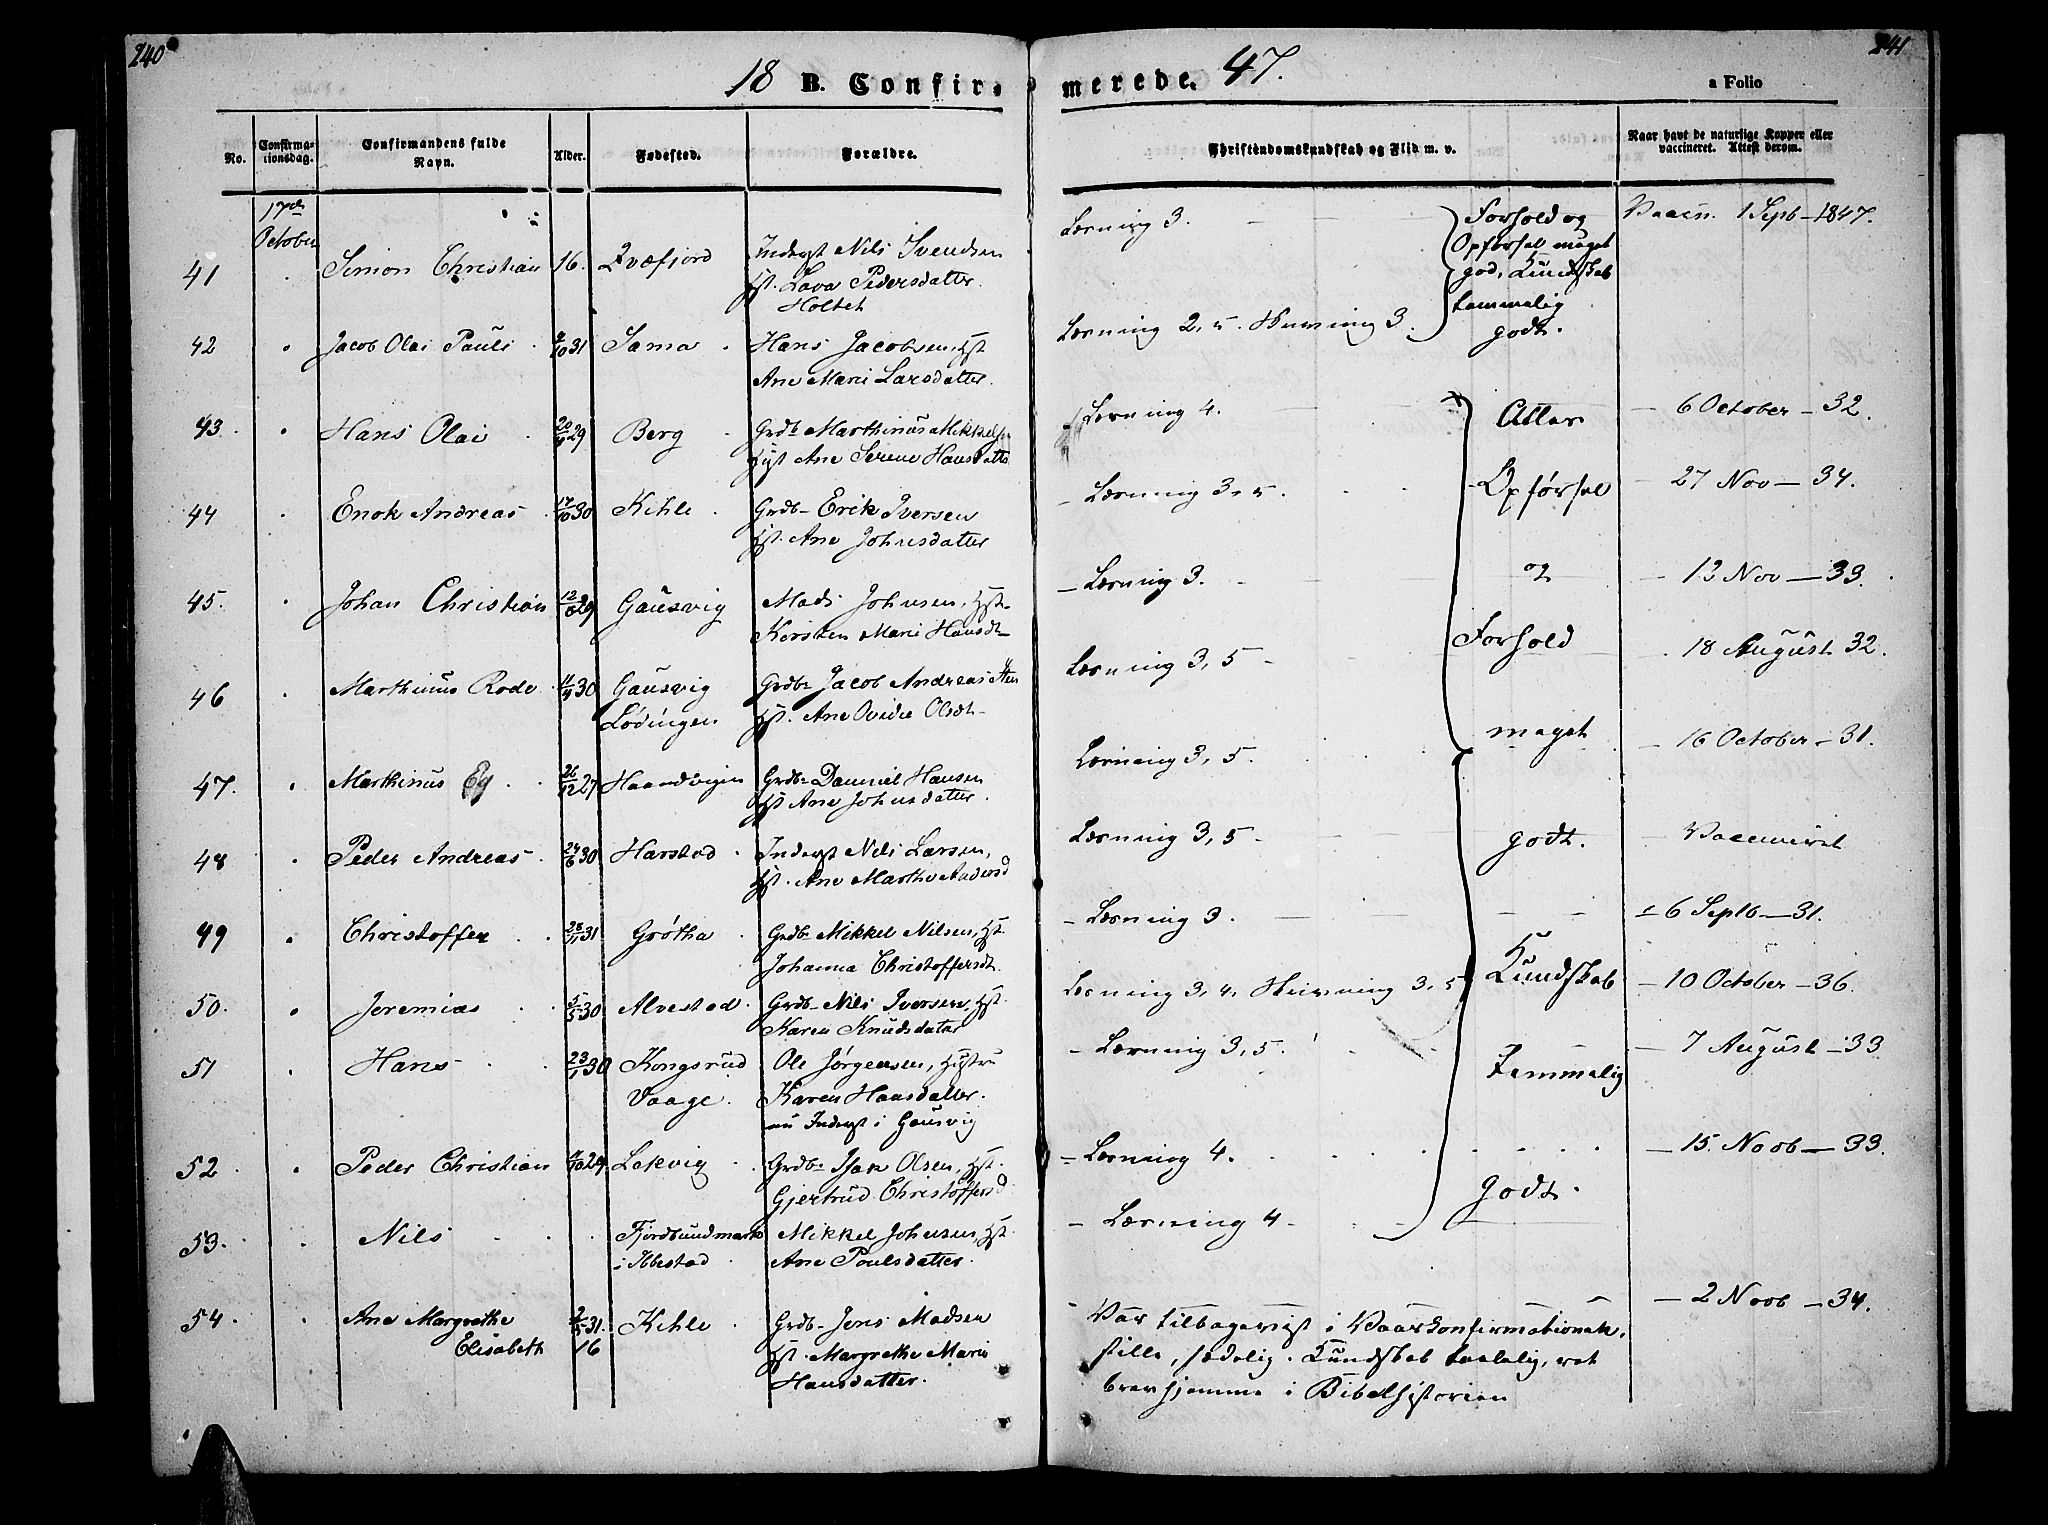 240
241
18 B. Confir- merede. 47.
a Folio
No.
Confirma-
tionsdag.
Confirmandens fulde
Navn.
Alder.
Fødested.
Forældre.
Christendomskundskab og Flid m. v.
Naar havt de naturlige Kopper eller
vaccineret. Attest derom.
17de
October
41 Simon Christian 16. Qvæfjord Inderst Nils Svendsen
Hst. Lava Pedersdatter.
Holtet
Læsning 3.
Forhold og
Opførsel meget
god, Kundskab
temmelig
godt.
Vaccn. 1 Septb - 1847.
42 Jacob Olai Pauli 9/10 31 Sama Hans Jacobsen, Hst
Ane Marie Larsdatter.
Læsning 2, 5. Skrivning 3.
43. Hans Olai 20/9 29 Berg Grdbr Marthinus Mikkels
Hst Ane Serene Hansdatter
Læsning 4.
Atter
6 October - 32.
44 Enok Andreas 17/10 30 Kihle Grdbr Erik Iversen
Hst. Ane Johnsdatter
Læsning 3, 5.
Opførsel
27 Nov - 34.
45. Johan Christian 29 Gausvig Mads Johnsen, Hst.
Kirsten Marie Hansdt
Læsning 3.
og
13 Nov - 33.
46 Marthinus Rode 30 Gausvig Grdbr Jacob Andreas
Lødingen Hst. Ane Ovidie Olsdt
Læsning 3, 5
Forhold
18 August 32.
47. Marthinus Eg 26/12 27 Haandvigen Grdbr Danniel Hansen
Hst Ane Johnsdatter.
Læsning 3, 5.
meget
16 October - 31.
48 Peder Andreas 24/6 30 Harstad Inderst Nils Larsen,
Hst. Ane Marthe Andersd
Læsning 3, 5
godt.
Vaccineret
49 Christoffer 28/11 31 Grøtha Grdbr Mikkel Nilsen, Hst.
Johanna Christoffersdt.
Læsning 3.
6 Septb - 31.
50. Jeremias 5/5 30 Alvestad Grdbr Nils Iversen, Hst.
Karen Knudsdatter
Læsning 3, 4, Skrivning 3, 5
Kundskab
10 October - 36.
51 Hans 23/1 30 Kongsrud Ole Jørgensen, Hustru
Vaage. Karen Hansdatter.
nu Inderst i Gausvig
Læsning 3, 5.
Temmelig
7 August - 33
52 Peder Christian 29 Lekvig Grdbr Isak Olsen, Hst.
Gjertrud Christoffersd
Læsning 4.
15. Novb - 33.
53. Nils Fjordbundmark Mikkel Johnsen, Hst.
i Ibbestad Ane Poulsdatter.
Læsning 4
Godt.
54. Ane Margrethe 31. Kihle Grdbr Jens Madsen
Elisabeth 16 Hst. Margrethe Marie
Hansdatter.
Var tilbagevist i Vaarkonfirmationen,
stille, sædelig. Kundskab taalelig, ret
bra hjemme i Bibelhistorien
2 Novb - 34.